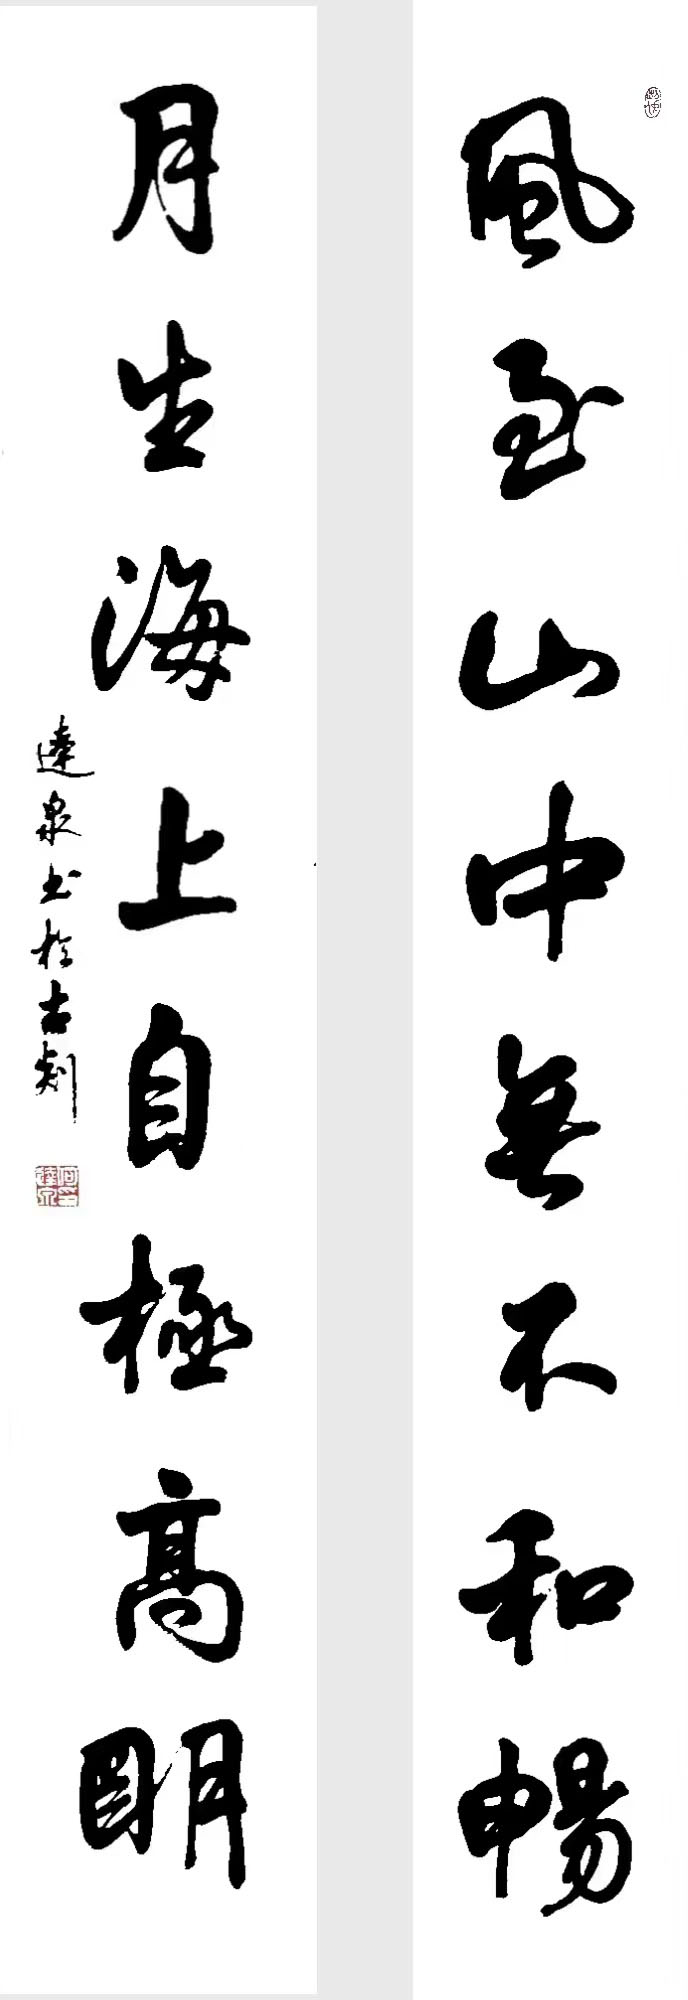 風至山中無不和暢
月生海上自極高明
達泉书於古剡